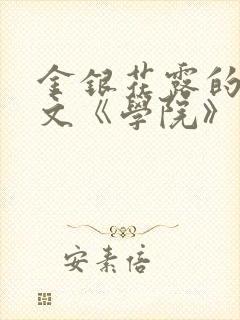 金銀花露的
文《學院》
安素倍